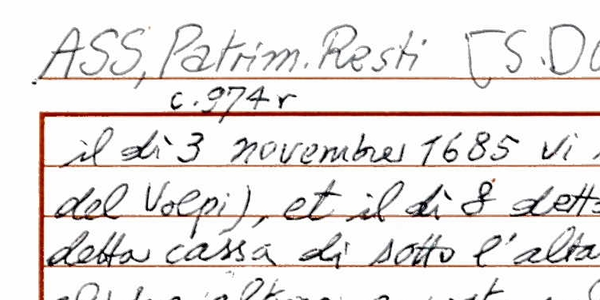 ASS, Patrim. Resti [S. DO
c. 974 r
il dì 3 novembre 1685 vi
del Volpi), et il dì 8 detto
detta cassa di sotto l'alta